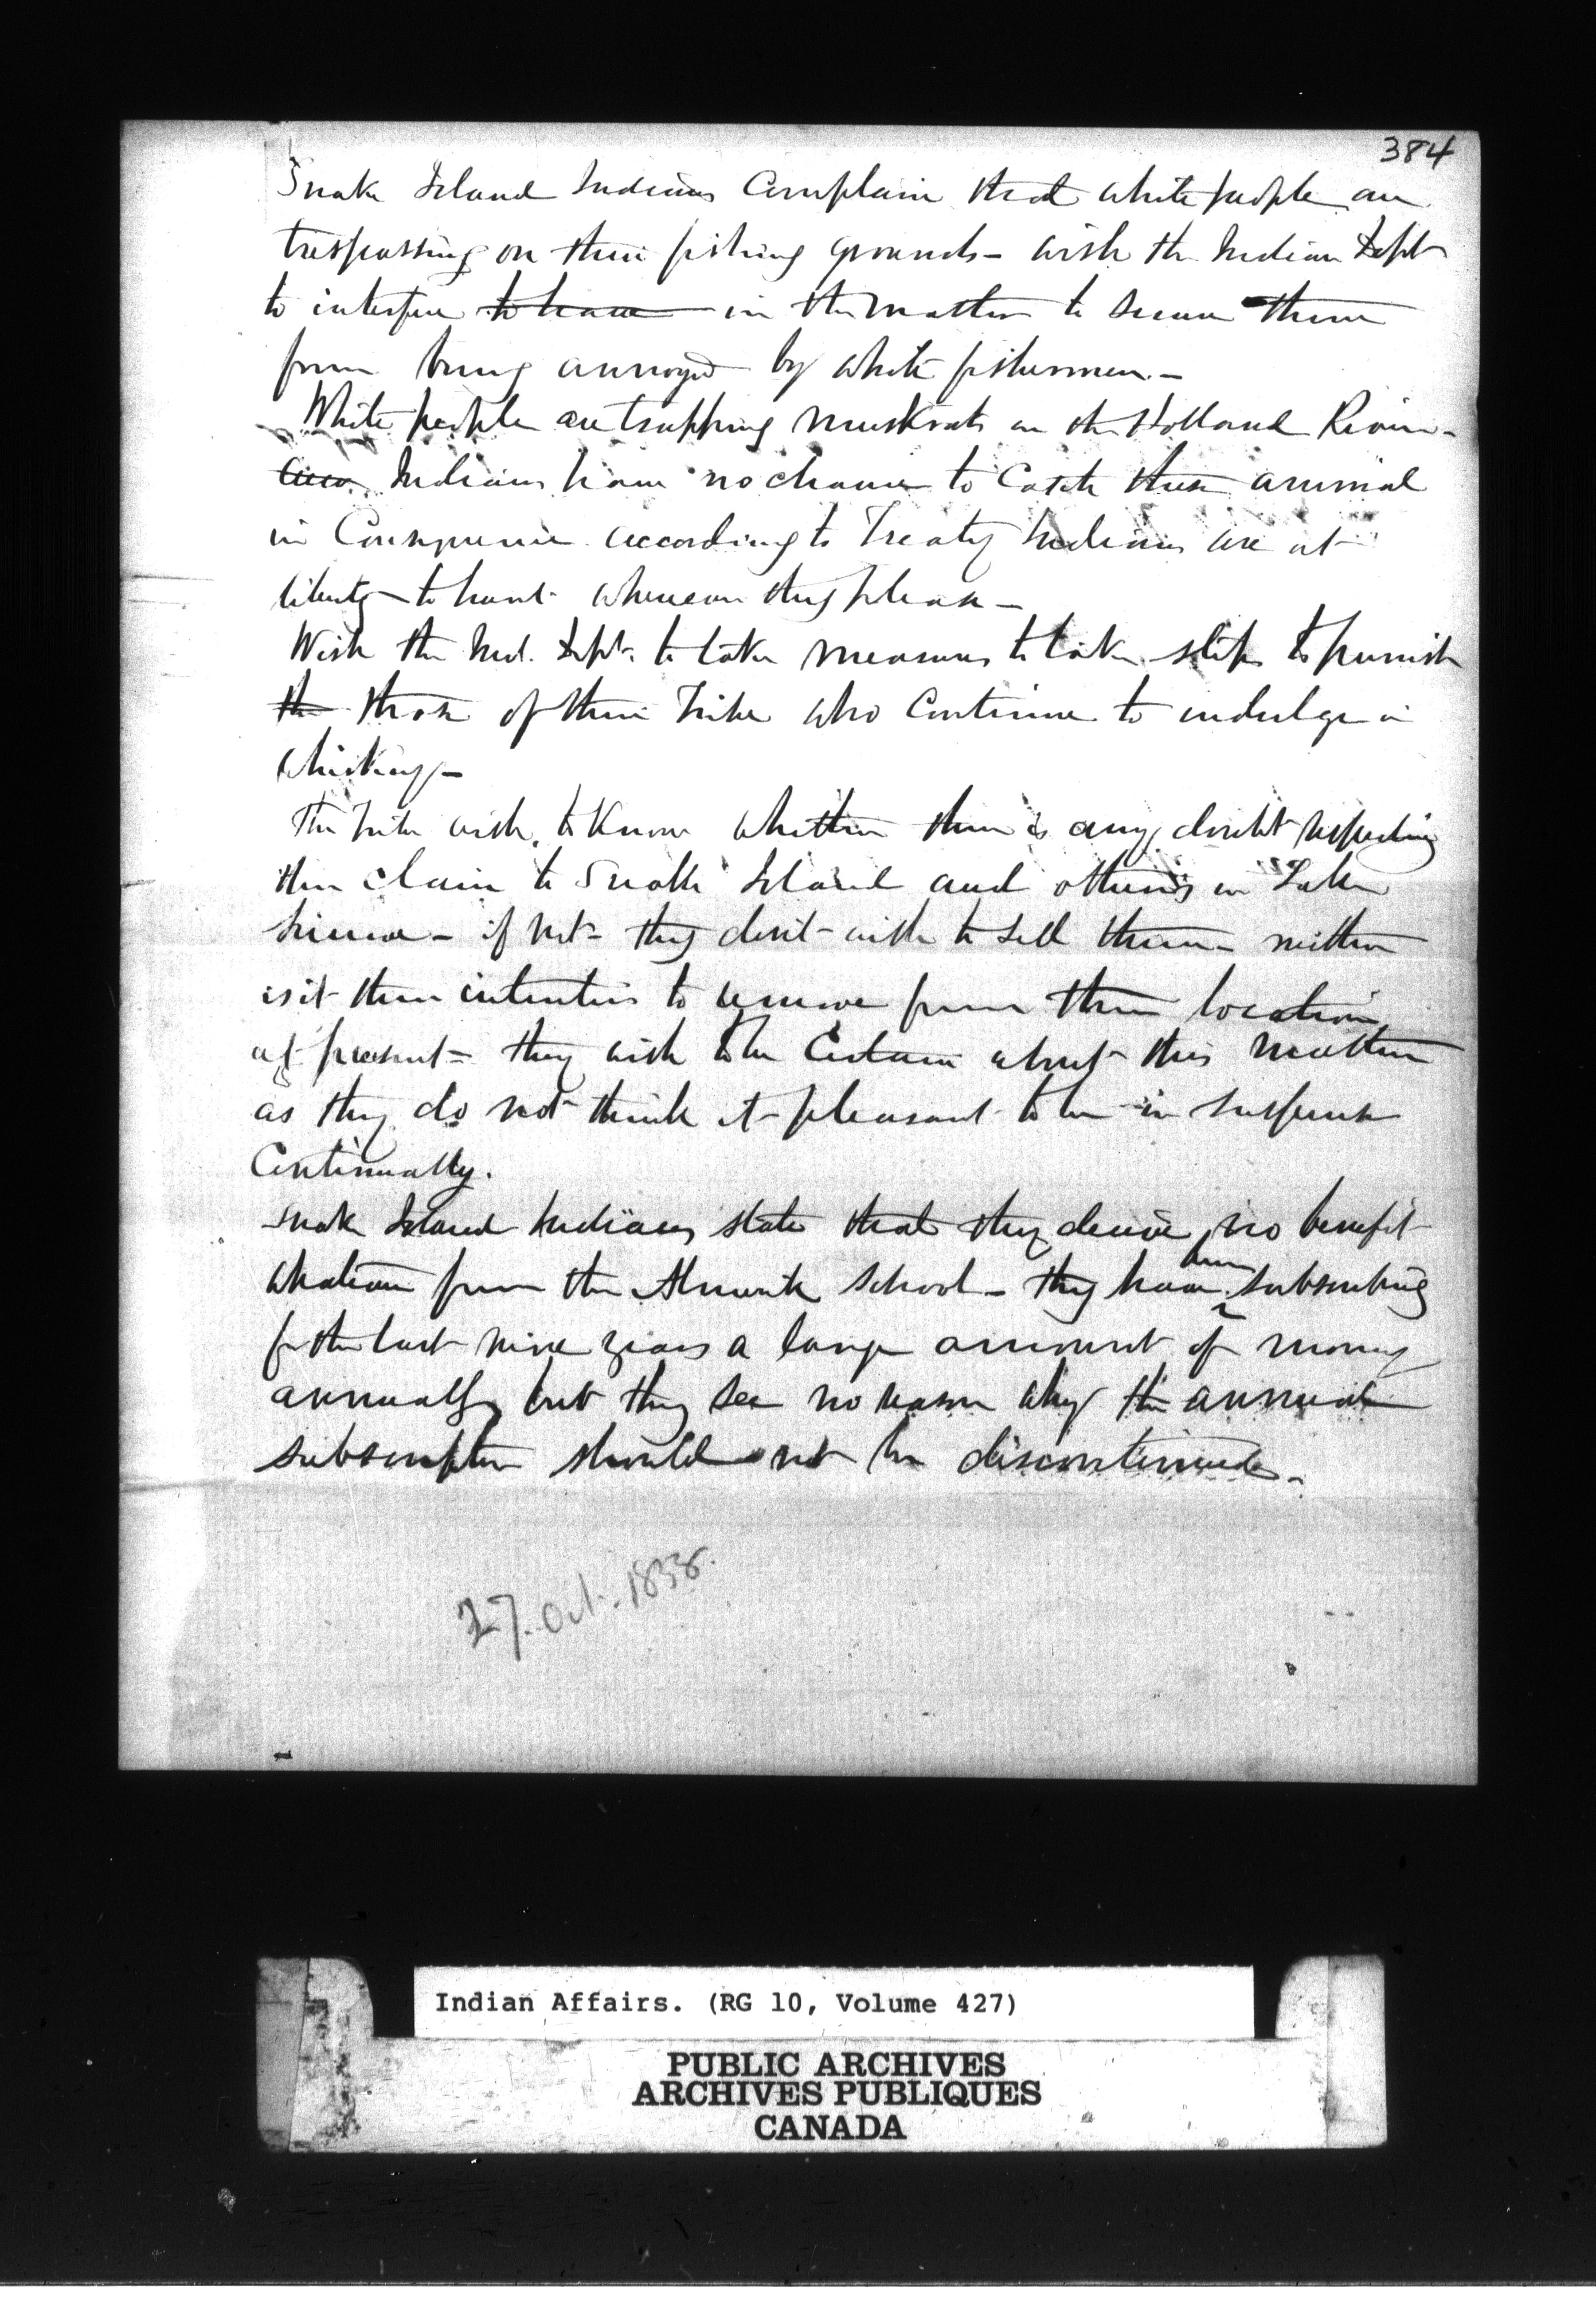 384
Snake Island Indians Complain that white people are
trespassing on their fishing grounds - wish the Indian Dept
to interfere to have in the matter to secure them
from being annoyed by white fishermen. -
White people are trapping muskrats on the Holland River -
Indians have no chance to Catch these animal
in Consequence according to Treaty Indians are at
liberty to hunt wherever they please -
Wish the Ind. Dept. to take measures to take steps to punish
the those of their Tribe who Continue to indulge in
Whiskey -
The Tribe wish to Know whether there is any doubt respecting
their claim to Snake Island and others in Lake
Simcoe - if not - they don't wish to sell them - neither
is it their intention to remove from their location
at present - they wish to be Certain about this matter
as they do not think it pleasant to be in suspense
Continually.
Snake Island Indians state that they derive no benefit
whatever from the Alnwick School - they have been subscribing
for the last nine years a large amount of money
annually but they see no reason why the annual
subscription should not be discontinued -
27. Oct. 1858.
Indian Affairs. (RG 10, Volume 427)
PUBLIC ARCHIVES
ARCHIVES PUBLIQUES
CANADA